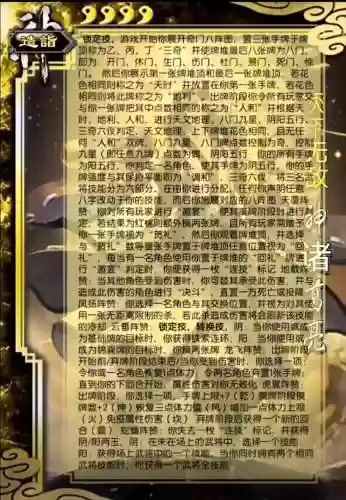 造詣
神
9999
锁定技，游戏开始你展开奇门八阵图，置三张手牌于牌
顶称为乙、丙、丁“三奇”并使牌堆最后八张牌为八门，
即为 开门、休门、生门、伤门、杜门、景门、死门、惊
门。然后你展示第一张牌堆顶和最后一张牌堆顶，若花
色相同称之为“天时”并放置在你第一张手牌，若花色
相同则将此牌称之为“地利”。出牌阶段你令所有玩家交
与你一张牌把其中点数相同的称之为“人和”并根据天
时、地利、人和，进行天文地理，八门九星，阴阳五行，
三奇六仪判定，天文地理，上下牌堆花色相同，且无任
何“人和”双牌，八门九星，八门牌点数控制为奇，控制
九星（即任意九牌）点数为偶，阴阳五行 你的所有手牌
为阳五行，你判定一名角色，使其手牌为阴五行，你的手
牌强度与其保持平衡即为“调和”，三奇六仪 将三名武
将技能分为六部分，在由你进行分配，任何你声明任意
八字改动于你的技能，而后你出牌对应的八阵图 天覆阵
赞：你对所有玩家进行“邀宴”，使其演牌阶段时进行判
定，若结果为红桃则额外摸两张牌，且所有玩家需赠予
你一张手牌视为“贺礼”，然后你观看牌堆顶，并选择
与“贺礼”数等量张手牌置于牌堆顶任意位置视为“回
礼”，每当有一名角色使用你置于牌堆的“回礼”牌进
行“邀宴”判定时，你便获得一枚“连技”标记 地载阵
赞：当其他角色受到伤害时，你可替其承受此伤害，并与
造成此伤害的角色进行“决斗”，直至一方死亡或投降
风扬阵赞：你选择一名角色与其交换位置，并视为对其使
用一张无距离限制的杀。若此杀造成伤害将会刷新该技能
的冷却 云垂阵赞：锁定技，转换技，阴：当你使用或成
为基础牌的目标时，你获得铁索连环，阳：当你使用或成
为锦囊牌的目标时，你摸两张牌 龙飞阵赞：出牌阶段
开始前/弃牌阶段结束后/当你受到伤害时，你选择一项：
令你或一名角色恢复1点体力；令两名角色弃置1张手牌；
直到你的下回合开始，属性伤害对你无效化 虎翼阵赞：
出牌阶段，你选择一项，手牌上限+7（乾）摸牌阶段摸
牌数+2（坤）恢复三点体力值（风）增加一点体力上限
（火）免疫属性伤害（坎） 弃牌阶段后获得一个新的回
合（震） 蛇蟠阵赞：你失去一枚“连技”标记，并获得
阴/阳两玉，阴：在未在场上的武将中，选择一个技能
阳：获得场上一名武将的一个技能。当你同时拥有两个相同
武将技能时，你获得一个武将全技能